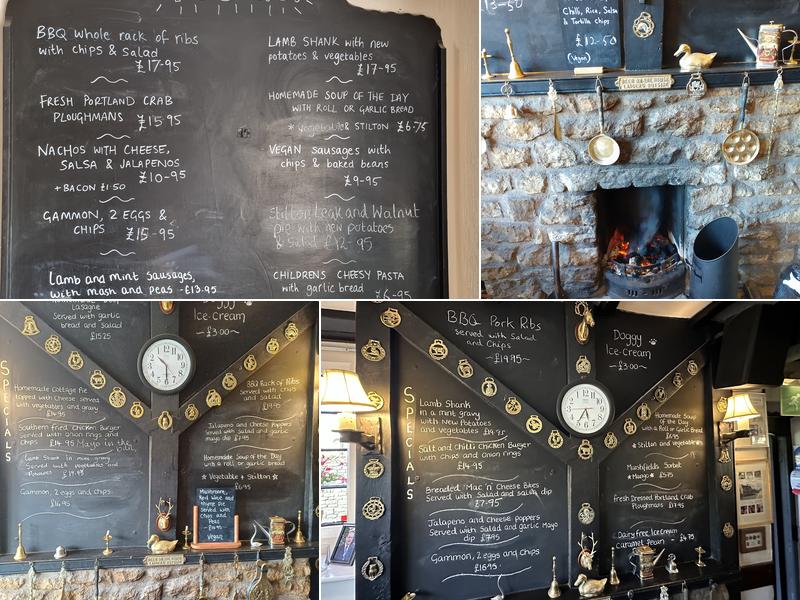 BBQ whole rack of ribs
with chips & salad
£17-95
FRESH PORTLAND CRAB
PLOUGHMANS £15.95
NACHOS WITH CHEESE,
SALSA & JALAPENOS
£10-95
+ BACON £1.50
GAMMON, 2 EGGS &
CHIPS £15-95
Lamb and mint sausages,
with mash and peas -£13.95
LAMB SHANK with new
potatoes & vegetables
£17-95
HOMEMADE SOUP OF THE DAY
WITH ROLL OR GARLIC BREAD
* vegetable & STILTON £6-75
VEGAN sausages with
chips & baked beans
£9-95
Stilton Leak and Walnut
Pie with new potatoes
& Salad £12-95
CHILDRENS CHEESY PASTA
with garlic bread
£6-95
13-50
Chilli, Rice, Salsa
& Tortilla chips
£12-50
(Vegan)
Lasagne
Served with garlic
bread and salad
Doggy
Ice-cream
~£3.00~
SPECIALS
Homemade Cottage Pie
topped with Cheese served
with vegetables and gravy
Southern fried Chicken Burger
Served with onion rings and
Lamb Shank in mint gravy
Served with vegetables and
Potatoes
Gammon, 2 eggs and chips
£16.95
BBQ Rack of Ribs
Served with chips
and salad
Jalapeno and Cheese poppers
Served with salad and garlic
mayo dip
Homemade Soup of the Day
with a roll or garlic bread
* Vegetable * Stilton *
Mushroom,
Red wine and
thyme Pie
Served with
chips and
Peas
Vegan
BBQ Pork Ribs
served with Salad
and Chips
~£19.95~
Doggy
Ice-cream
~£3.00~
SPECIALS
Lamb Shank
in a mint gravy
with New Potatoes
and vegetables
Salt and Chilli Chicken Burger
with Chips and onion rings
£14.95
Breaded 'Mac 'n' Cheese Bites
Served with Salad and salsa dip
£7.95
Jalapeno and Cheese poppers
Served with Salad and garlic Mayo
dip £7.95
Gammon, 2 eggs and Chips
£16.95
Homemade Soup
of the Day
with a Roll or Garlic Bread
* Stilton and vegetable
Marshfields Sorbet
*Mango* £5.75
Fresh Dressed Portland Crab
Ploughmans
Dairy free Ice Cream
Caramel Pecan